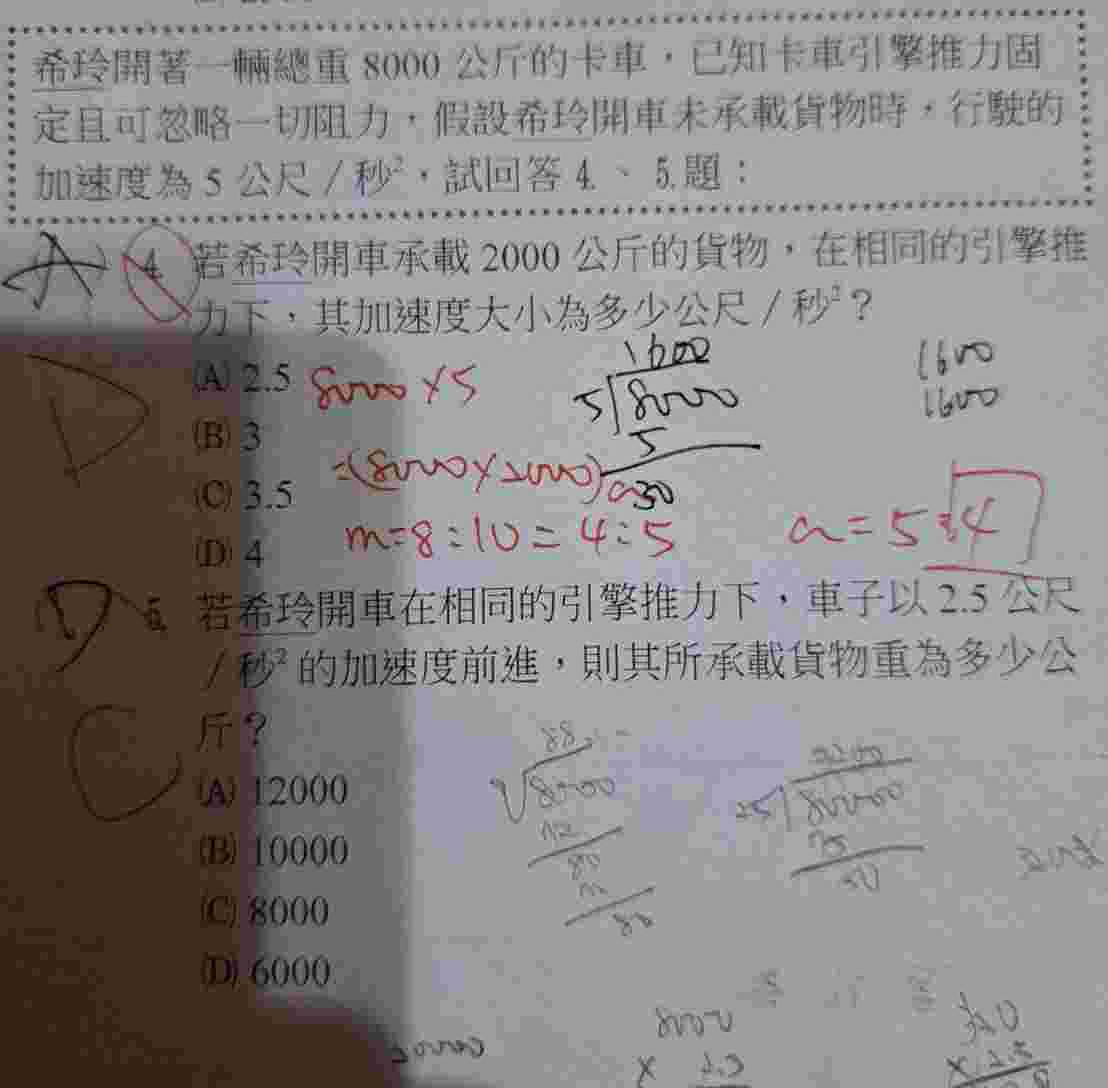 希玲開著一輛總重 8000 公斤的卡車，已知卡車引擎推力固
定且可忽略一切阻力，假設希玲開車未承載貨物時，行駛的
加速度為 5 公尺／秒²，試回答 4.、5.題：
A 4. 若希玲開車承載 2000 公斤的貨物，在相同的引擎推
力下，其加速度大小為多少公尺／秒²？
D
(A) 2.5
8000×5
1600
5 8000
5
30
1600
1600
(B) 3
(C) 3.5
=(8000×2000)a
(D) 4
m=8:10=4:5
a=5:4
D 5. 若希玲開車在相同的引擎推力下，車子以 2.5 公尺
／秒² 的加速度前進，則其所承載貨物重為多少公
斤？
C
(A) 12000
(B) 10000
(C) 8000
(D) 6000